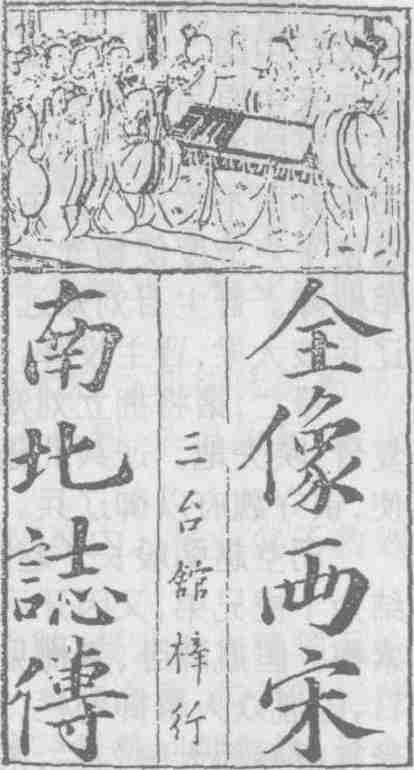 全像兩宋
三台舘梓行
南北誌傳